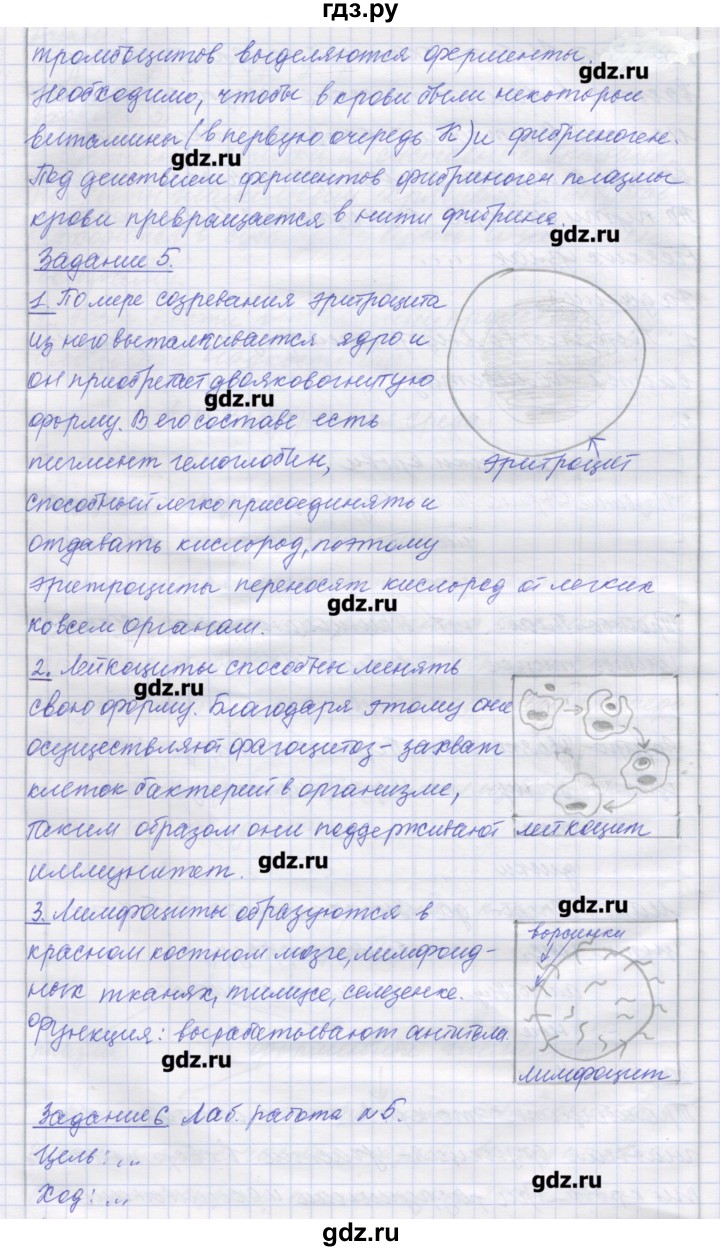 гдз.ру
тромбоцитов выделяются ферменты.
gdz.ru
Необходимо, чтобы в крови были некоторые
витамины (в первую очередь К) и фибриноген.
gdz.ru
Под действием ферментов фибриноген плазмы
крови превращается в нити фибрина.
gdz.ru
Задание 5.
1. По мере созревания эритроцита
из него выталкивается ядро и
он приобретает двояковогнутую
gdz.ru
форму. В его составе есть
пигмент гемоглобин,
эритроцит
способный легко присоединять и
отдавать кислород, поэтому
эритроциты переносят кислород от легких
gdz.ru
ко всем органам.
2. Лейкоциты способны менять
gdz.ru
свою форму. Благодаря этому они
осуществляют фагоцитоз - захват
клеток бактерий в организме,
таким образом они поддерживают
лейкоцит
иммунитет.
gdz.ru
3. Лимфоциты образуются в
gdz.ru
ворсинки
красном костном мозге, лимфоид-
ных тканях, тимусе, селезенке.
Функция: вырабатывают антитела.
gdz.ru
лимфоцит
Задание 6. Лаб. работа №5.
Цель: ...
gdz.ru
Ход: ...
gdz.ru